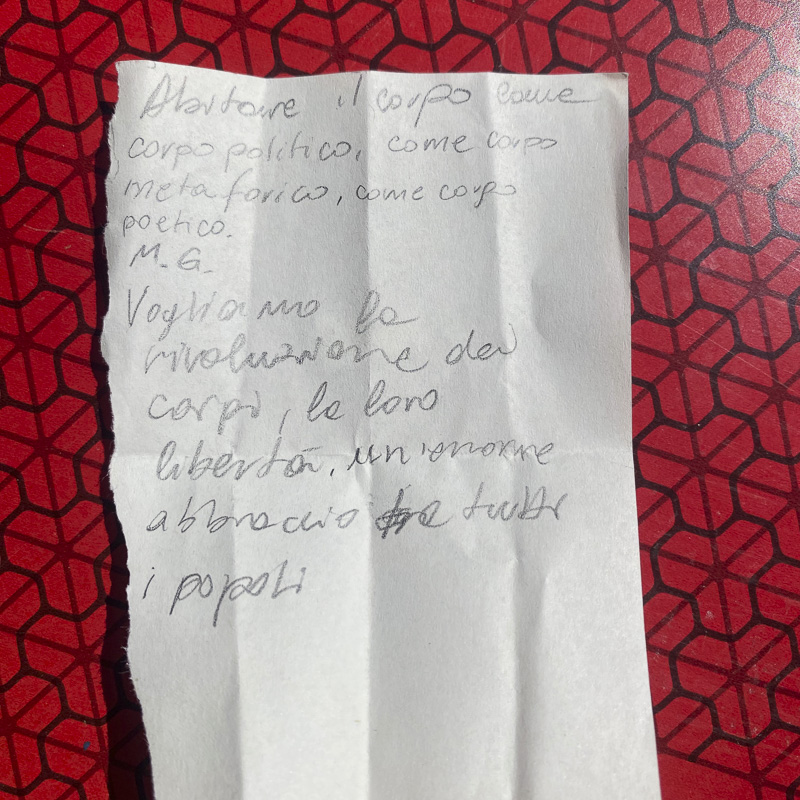 Abitare il corpo come
corpo politico, come corpo
metaforico, come corpo
poetico.
M.G.
Vogliamo la
rivoluzione dei
corpi, la loro
libertà, un'enorme
abbraccio tra tutti
i popoli